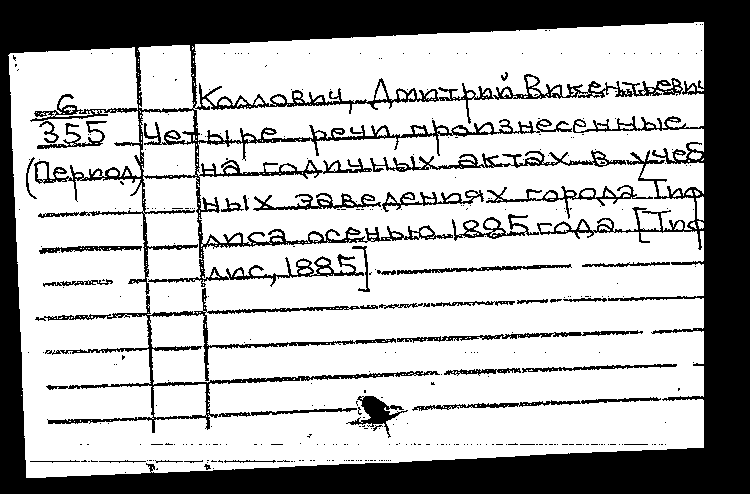 6
Коллович, Дмитрий Викентьевич
355 Четыре речи, произнесенные
(Период) на годичных актах в учеб
ных заведениях города Тиф
лиса осенью 1885 года [Тиф
лис, 1885]